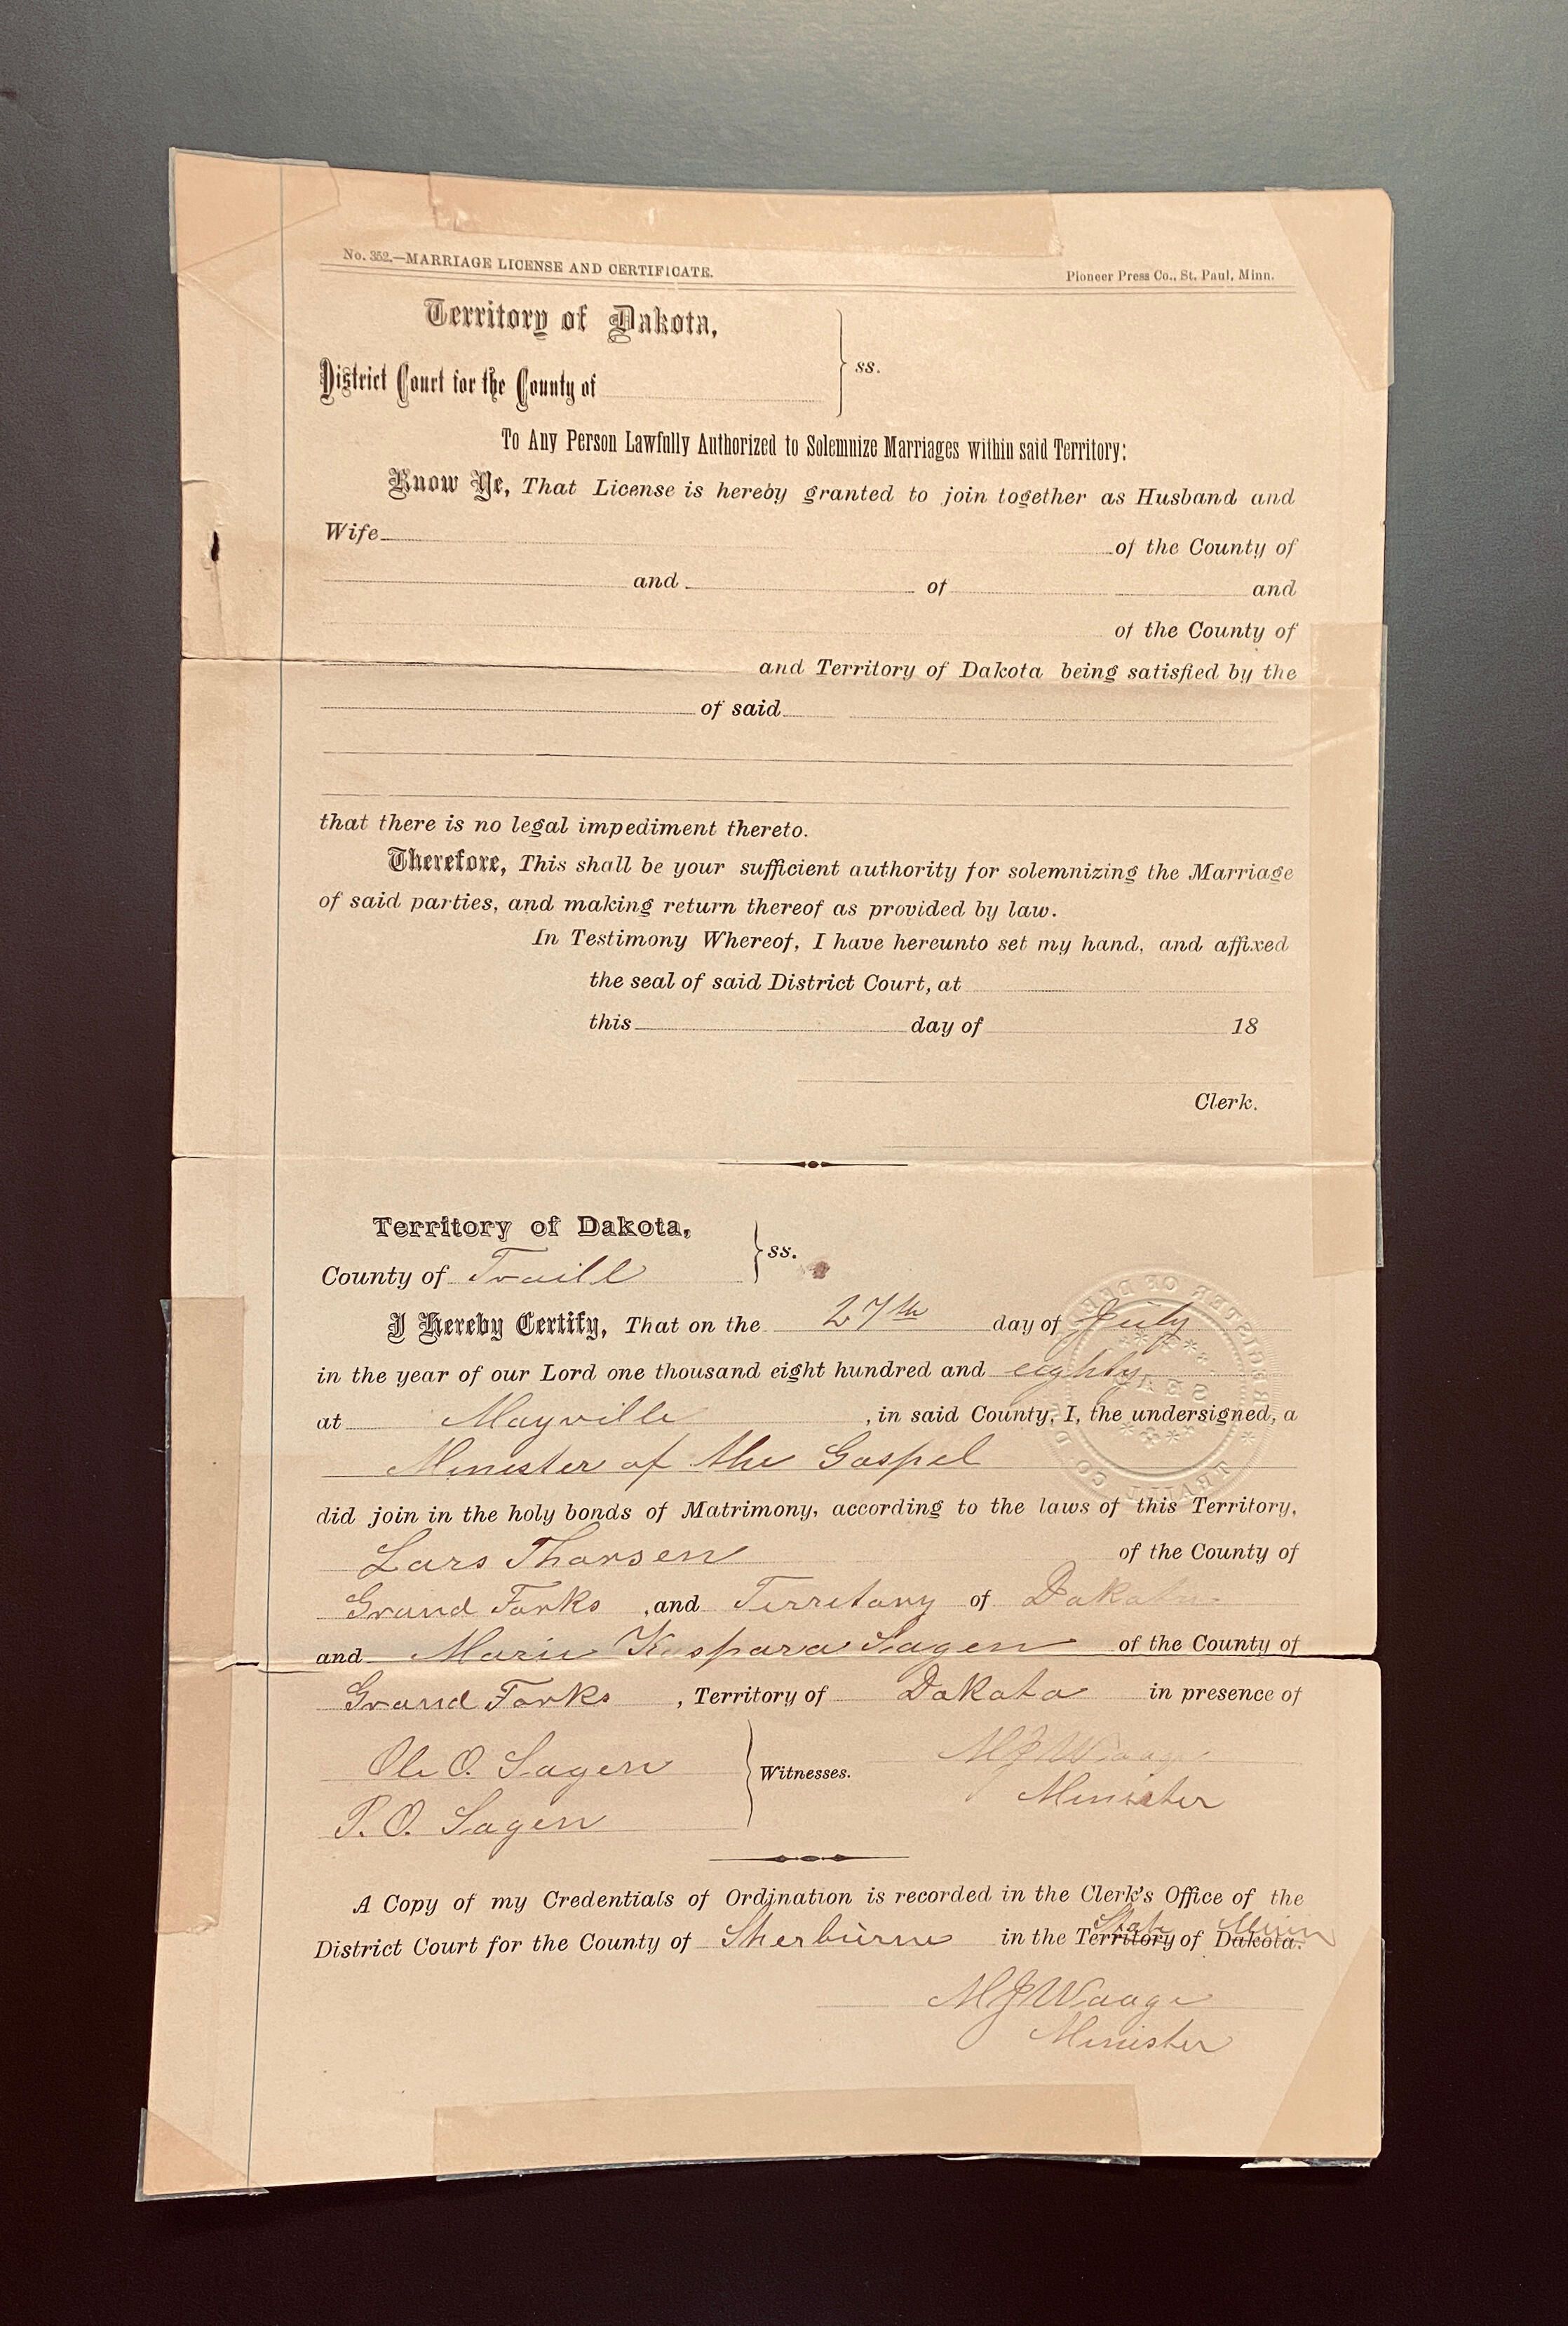 No. 352.—MARRIAGE LICENSE AND CERTIFICATE. Pioneer Press Co., St. Paul, Minn.
Territory of Dakota,
District Court for the County of } ss.
To Any Person Lawfully Authorized to Solemnize Marriages within said Territory:
Know Ye, That License is hereby granted to join together as Husband and
Wife of the County of
and of and
of the County of
and Territory of Dakota being satisfied by the
of said
that there is no legal impediment thereto.
Therefore, This shall be your sufficient authority for solemnizing the Marriage
of said parties, and making return thereof as provided by law.
In Testimony Whereof, I have hereunto set my hand, and affixed
the seal of said District Court, at
this day of 18
Clerk.
Territory of Dakota,
County of Traill } ss.
I Hereby Certify, That on the 27th day of July
in the year of our Lord one thousand eight hundred and eighty
at Mayville, in said County, I, the undersigned, a
Minister of the Gospel
did join in the holy bonds of Matrimony, according to the laws of this Territory,
Lars Thorsen of the County of
Grand Forks, and Territory of Dakota
and Marie Kaspara Sagen of the County of
Grand Forks, Territory of Dakota in presence of
Ole O. Sagen } Witnesses. M J Waage
Minister
P. O. Sagen
A Copy of my Credentials of Ordination is recorded in the Clerk's Office of the
State Minn
District Court for the County of Sherburne in the Territory of Dakota.
M J Waage
Minister
REGISTER OF DEEDS
SEAL
TRAILL CO. D.T.